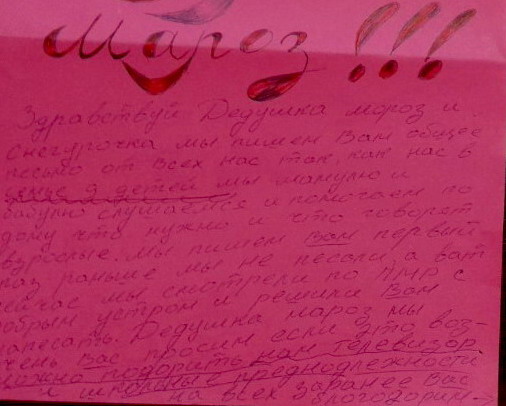 Мароз!!!
Здравствуй Дедушка мороз и
Снегурочка мы пишем Вам общее
письмо от всех нас так как нас в
семье 9 детей мы мамулю и
бабулю слушаемся и помогаем по
дому что нужно и что говорят
взрослые. Мы пишем Вам первый
раз раньше мы не песали а вот
сейчас мы смотрели по ПМР с
добрым устром и решили Вам
напесать. Дедушка мароз мы
очень Вас просим если это воз-
можно подорить нам телевизор
и школьные преднодлежности
на всех заранее Вас
блогодорим